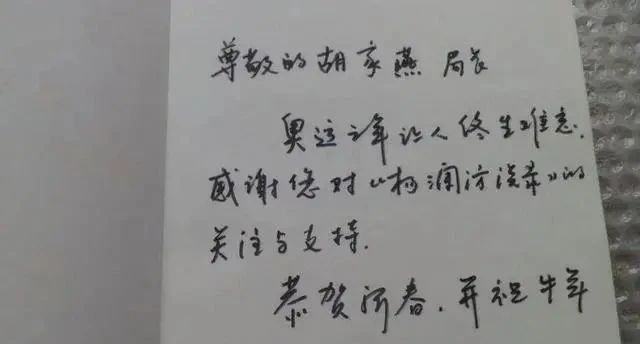 尊敬的胡家燕 局长
奥运之年让人终生难忘,
感谢您对《杨澜访谈录》的
关注与支持.
恭贺新春,并祝牛年